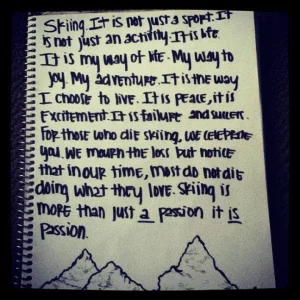 Skiing. It is not just a sport. It
is not just an activity. It is life.
It is my way of life. My way to
joy. My adventure. It is the way
I choose to live. It is peace, it is
Excitement. It is failure and success.
For those who die skiing, we celebrate
you. We mourn the loss but notice
that in our time, most do not die
doing what they love. Skiing is
more than just a passion it is
passion.